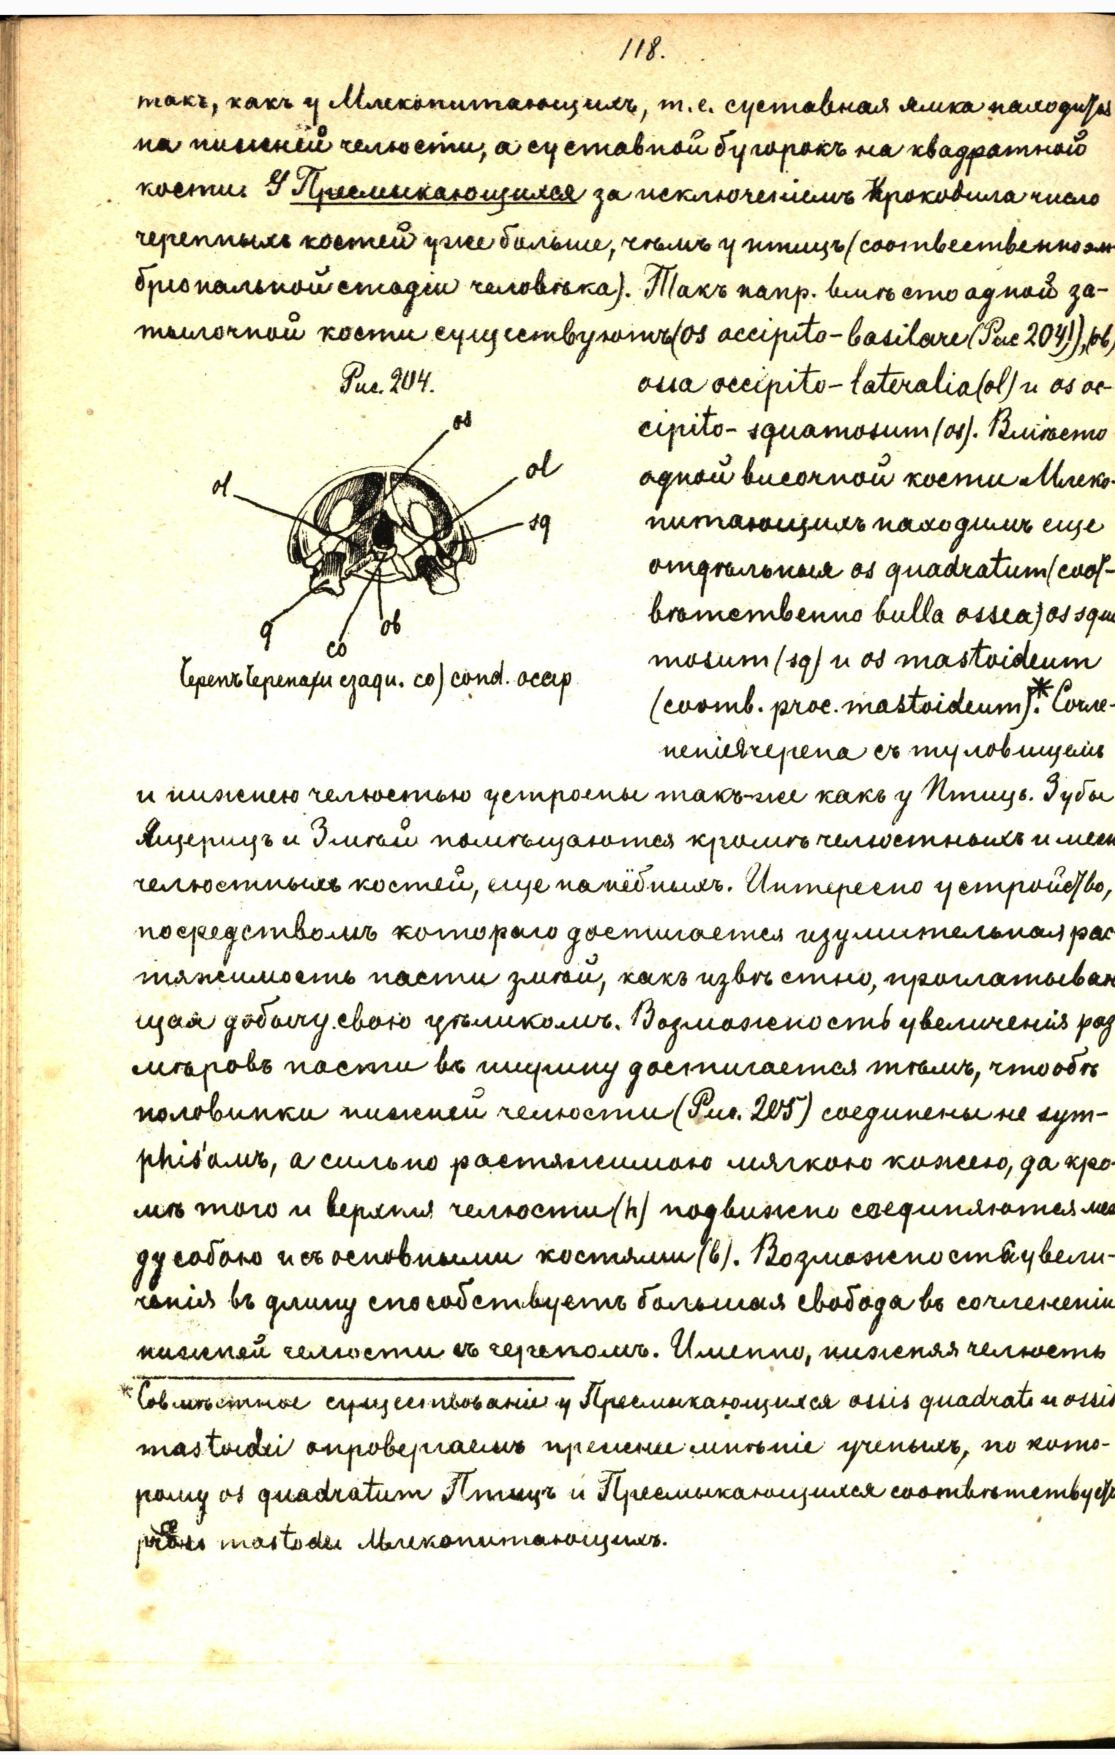 118.
такъ, какъ у Млекопитающихъ, т.е. суставная ямка находится
на нижней челюсти, а суставной бугорокъ на квадратной
кости. У Пресмыкающихся за исключеніемъ Крокодила число
черепныхъ костей уже больше, чѣмъ у птицъ (соотвественно эм-
бріональной стадіи человѣка). Такъ напр. вмѣсто одной за-
тылочной кости существуютъ (os occipito-basilare (Рис 204)), (ob)
Рис. 204.
ossa occipito-lateralia (ol) и os oc-
cipito-squamosum (os). Вмѣсто
одной височной кости Млеко-
питающихъ находимъ еще
отдѣльныя os quadratum (соот-
вѣтственно bulla ossea) os squa
mosum (sq) и os mastoideum
(соотв. proc. mastoideum).* Сочле-
ненія черепа съ туловищемъ
os
ol
ol
sq
q
co
ob
Черепъ Черепахи сзади. co) cond. occip
и нижнею челюстью устроены такъ-же какъ у Птицъ. Зубы
Ящерицъ и Змѣй помѣщаются кромѣ челюстныхъ и меж
челюстныхъ костей, еще на нёбныхъ. Интересно устройство,
посредствомъ котораго достигается изумительная рас
тяжимость пасти змѣй, какъ извѣстно, проглатываю
щая добычу свою цѣликомъ. Возможность увеличенія раз
мѣровъ пасти въ ширину достигается тѣмъ, что обѣ
половинки нижней челюсти (Рис. 205) соединены не sym-
phis'омъ, а сильно растяжимою мягкою кожею, да кро-
мѣ того и верхнія челюсти (h) подвижно соединяются меж
ду собою и съ основными костями (b). Возможности увели-
ченія въ длину способствуетъ большая свобода въ сочлененіи
нижней челюсти съ черепомъ. Именно, нижняя челюсть
* Совмѣстное существованіе у Пресмыкающихся ossis quadrati и ossis
mastoidei опровергаемъ прежнее мнѣніе ученыхъ, по кото-
рому os quadratum Птицъ и Пресмыкающихся соотвѣтствуетъ
mastodei Млекопитающихъ.